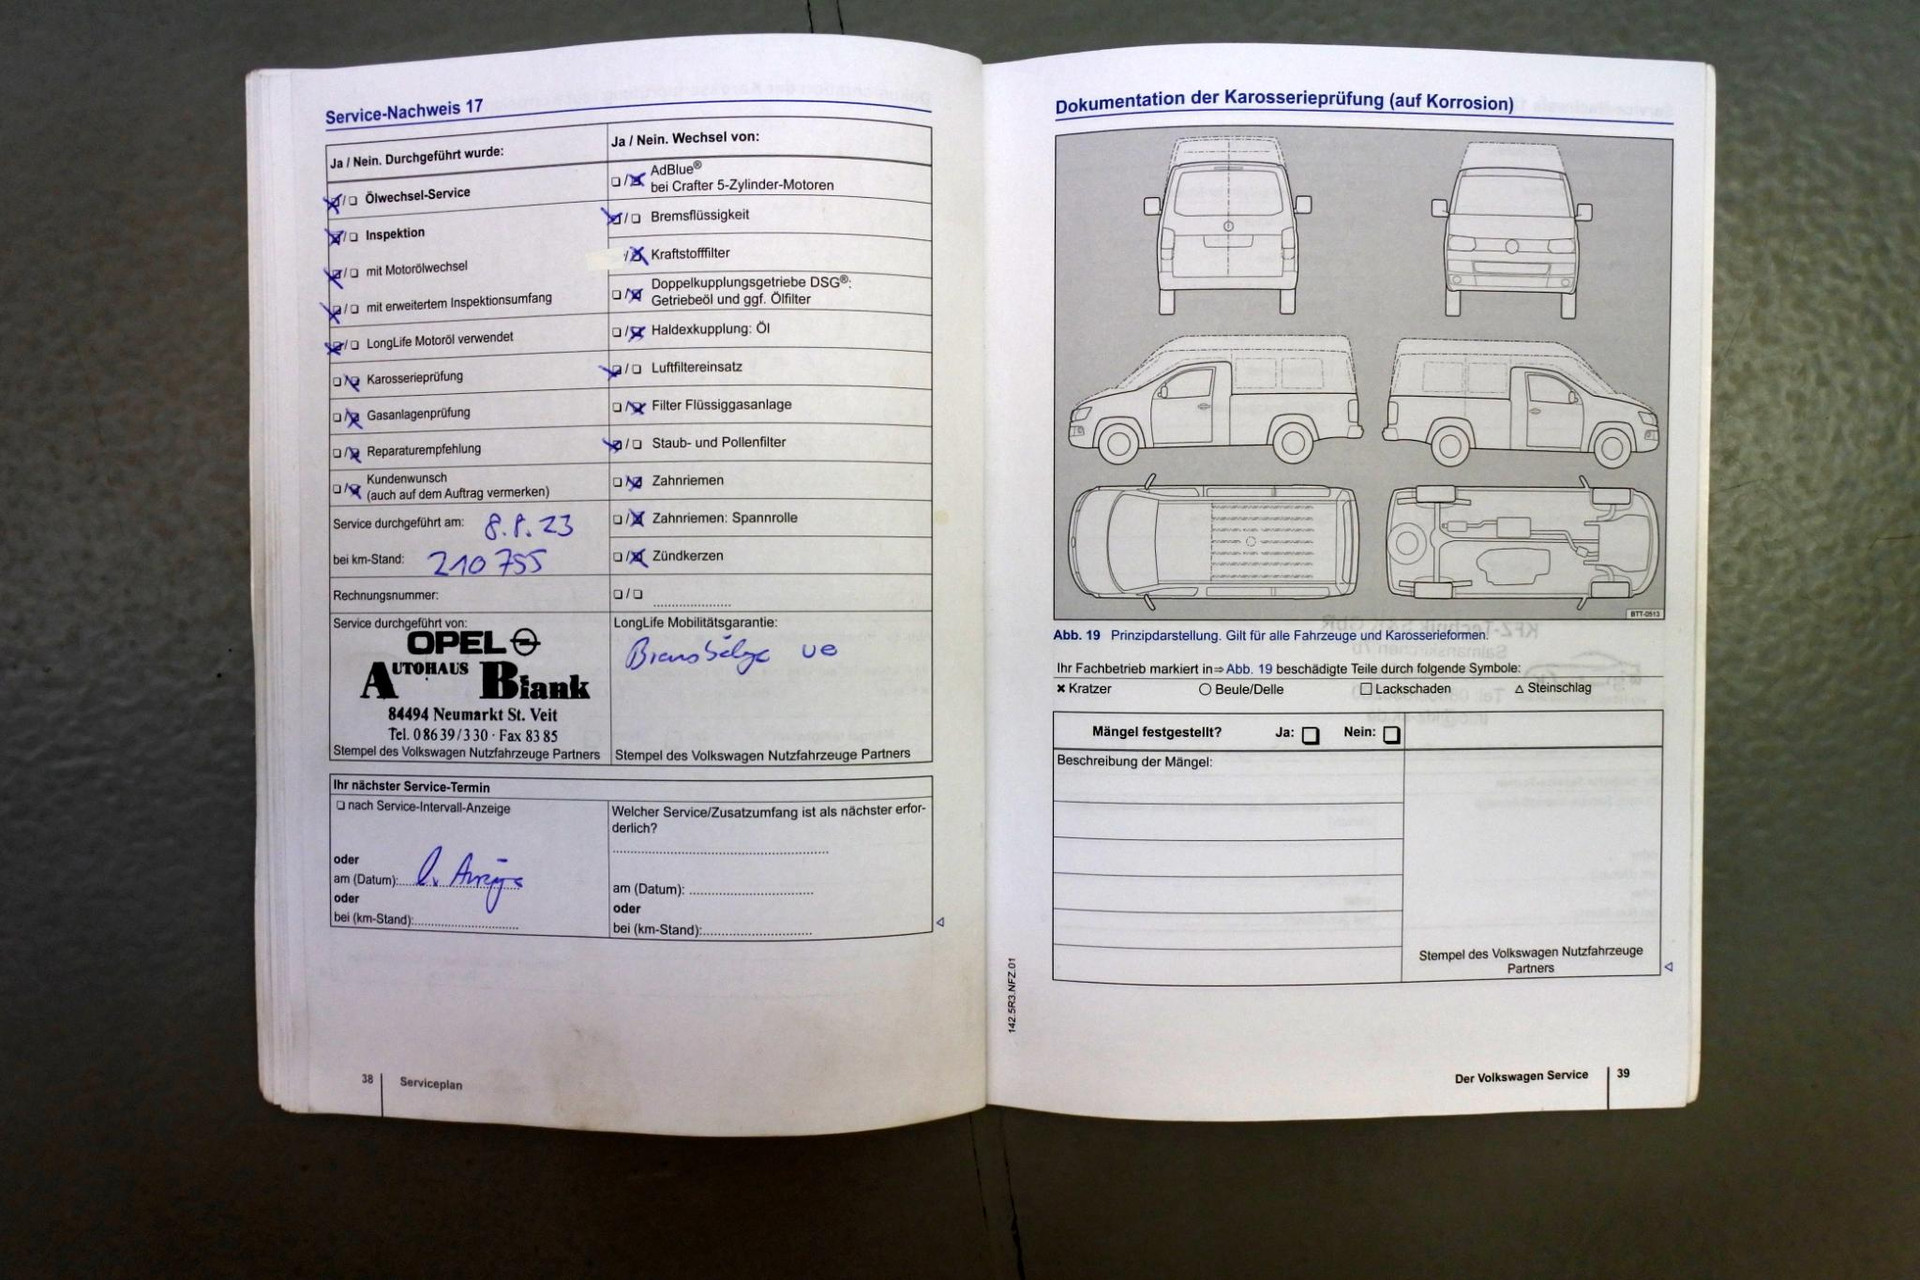 Service-Nachweis 17
Ja / Nein. Durchgeführt wurde:
Ölwechsel-Service
Inspektion
mit Motorölwechsel
mit erweitertem Inspektionsumfang
LongLife Motoröl verwendet
Karosserieprüfung
Gasanlagenprüfung
Reparaturempfehlung
Kundenwunsch
(auch auf dem Auftrag vermerken)
Service durchgeführt am: 8.8.23
bei km-Stand: 210 755
Rechnungsnummer:
Service durchgeführt von:
OPEL
AUTOHAUS Blank
84494 Neumarkt St. Veit
Tel. 08639/330 · Fax 8385
Stempel des Volkswagen Nutzfahrzeuge Partners
Ja / Nein. Wechsel von:
AdBlue®
bei Crafter 5-Zylinder-Motoren
Bremsflüssigkeit
Kraftstofffilter
Doppelkupplungsgetriebe DSG®:
Getriebeöl und ggf. Ölfilter
Haldexkupplung: Öl
Luftfiltereinsatz
Filter Flüssiggasanlage
Staub- und Pollenfilter
Zahnriemen
Zahnriemen: Spannrolle
Zündkerzen
LongLife Mobilitätsgarantie:
Stempel des Volkswagen Nutzfahrzeuge Partners
Ihr nächster Service-Termin
nach Service-Intervall-Anzeige
oder
am (Datum):
oder
bei (km-Stand):
Welcher Service/Zusatzumfang ist als nächster erfor-
derlich?
am (Datum):
oder
bei (km-Stand):
38 Serviceplan
Dokumentation der Karosserieprüfung (auf Korrosion)
BTT-0513
Abb. 19 Prinzipdarstellung. Gilt für alle Fahrzeuge und Karosserieformen.
Ihr Fachbetrieb markiert in⇒Abb. 19 beschädigte Teile durch folgende Symbole:
Kratzer Beule/Delle Lackschaden Steinschlag
Mängel festgestellt? Ja: Nein:
Beschreibung der Mängel:
Stempel des Volkswagen Nutzfahrzeuge
Partners
142.5R3.NFZ.01
Der Volkswagen Service 39